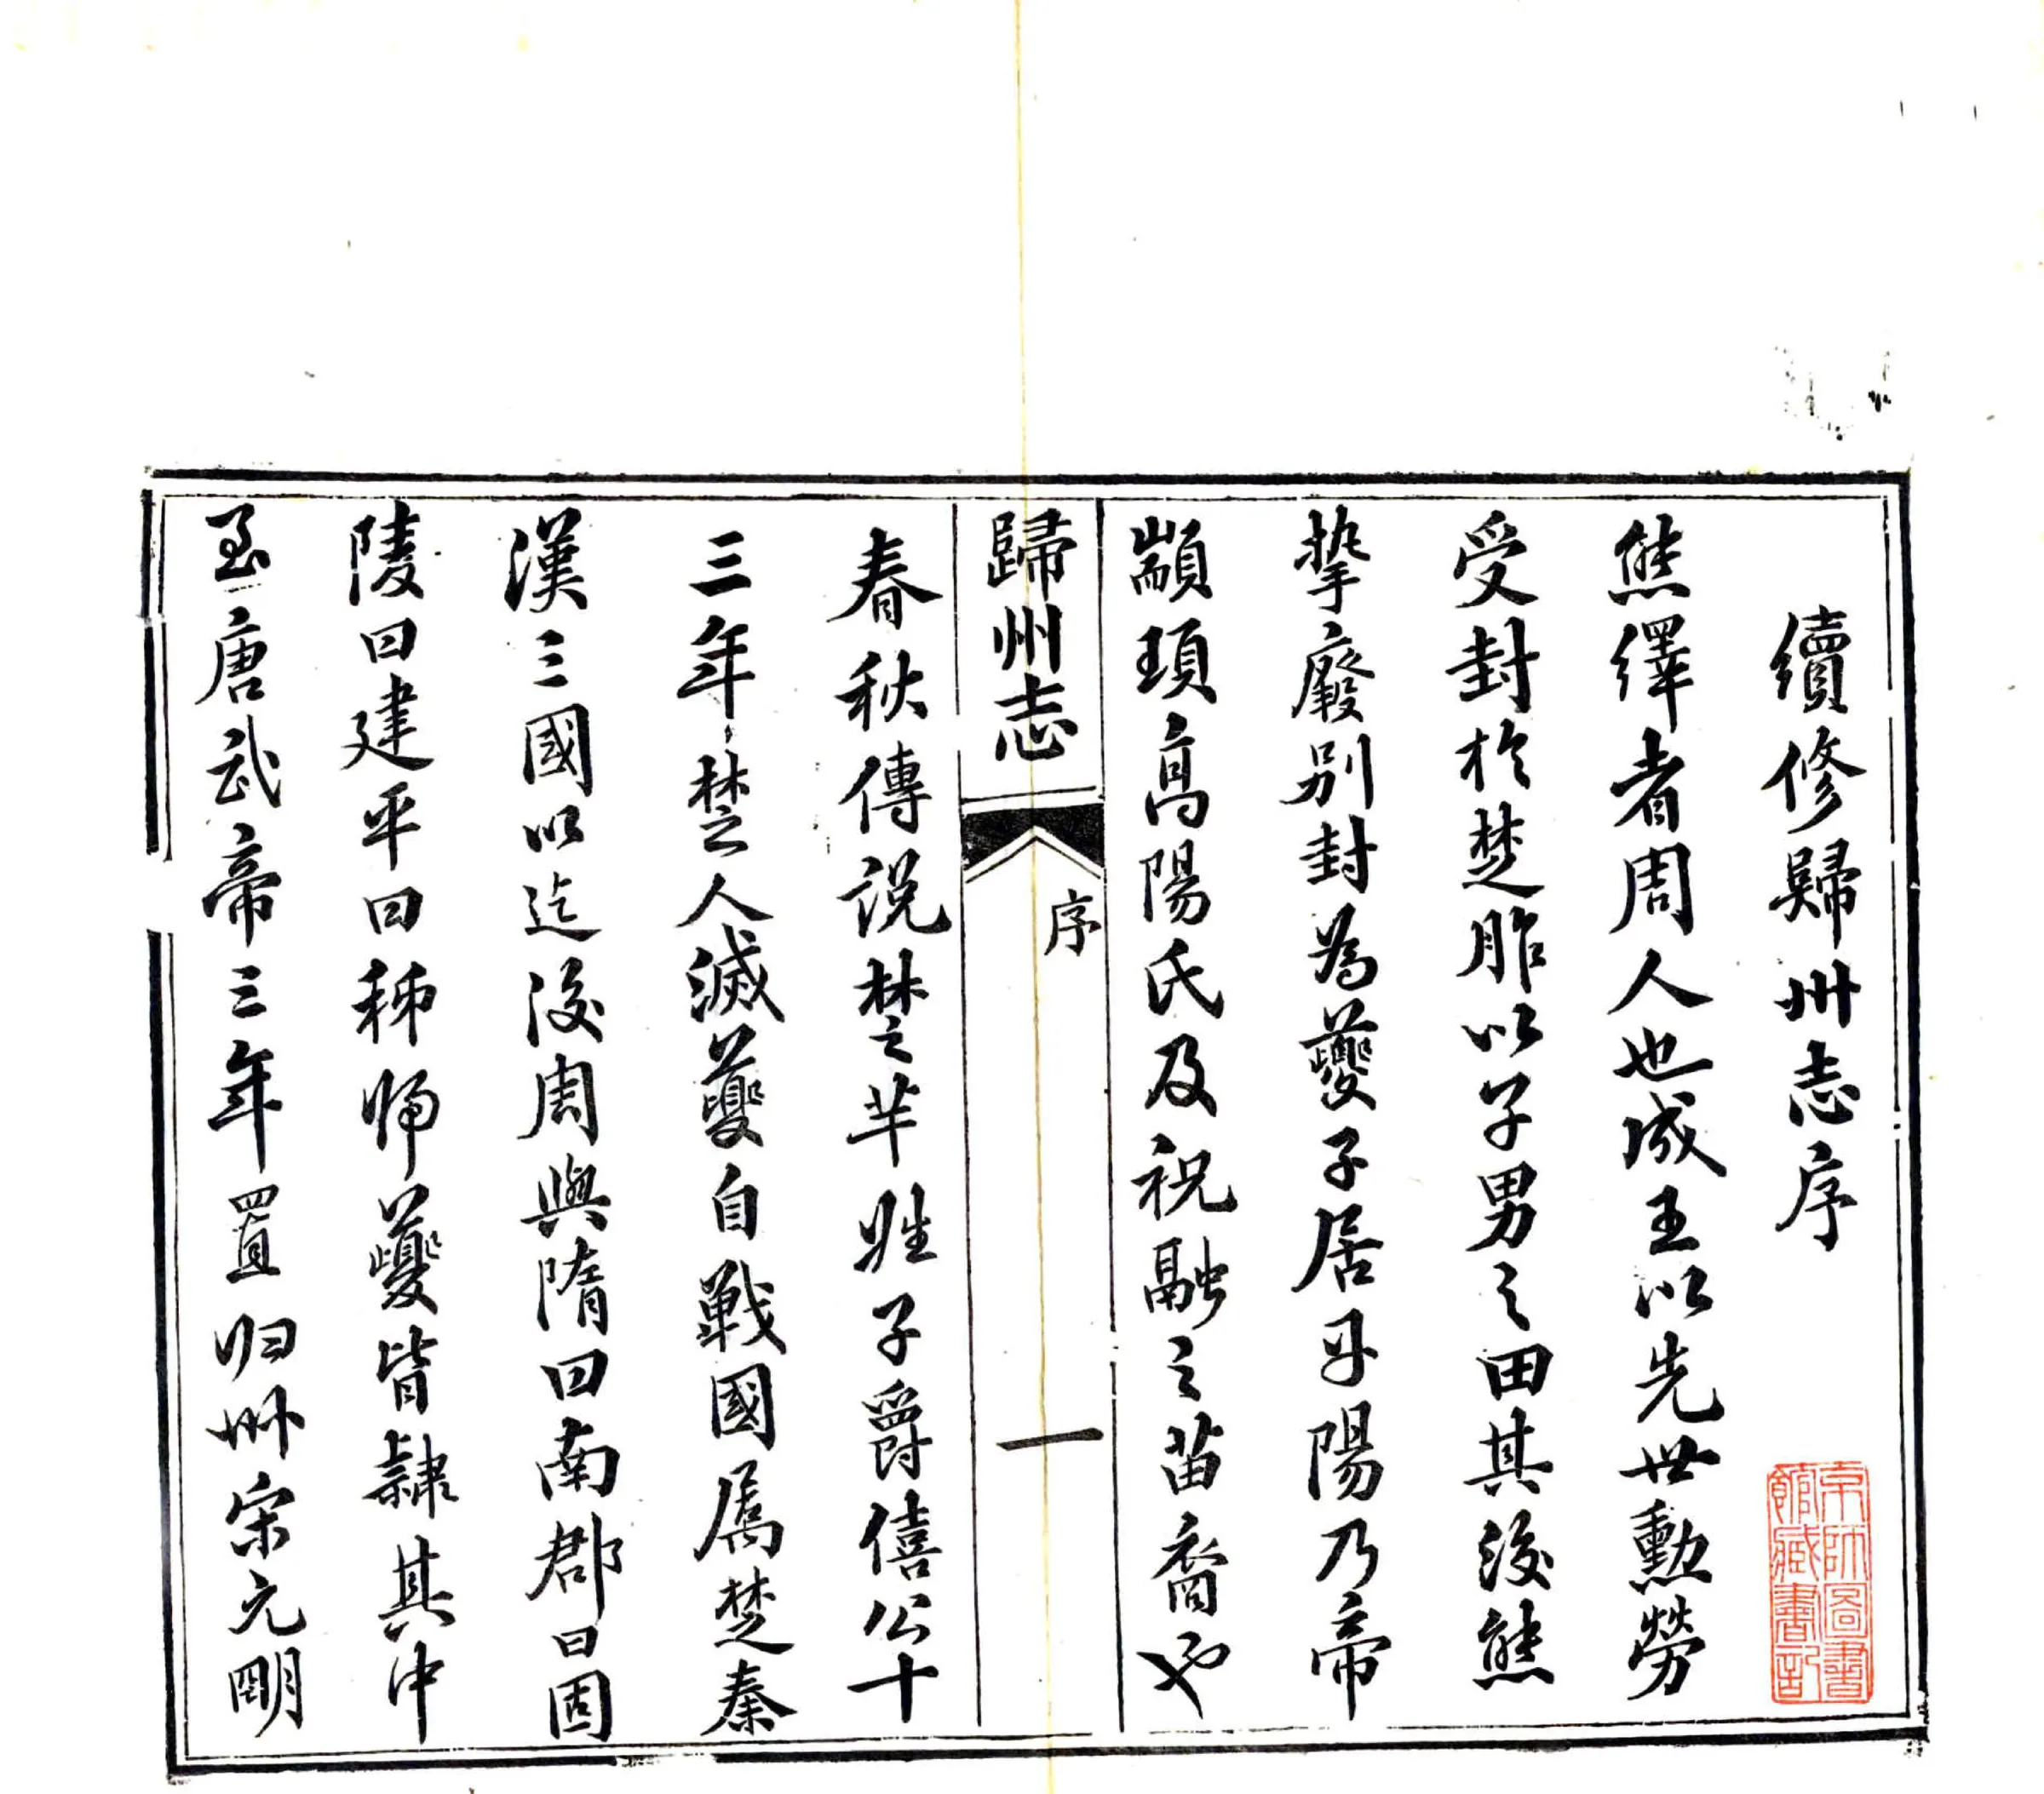 續修歸州志序
熊繹者周人也成王以先世勳勞
受封於楚胙以子男之田其後熊
摯廢別封為夔子居丹陽乃帝
顓頊高陽氏及祝融之苗裔也
歸州志
序
一
春秋傳說楚芈姓子爵僖公十
三年楚人滅夔自戰國屬楚秦
漢三國以迄後周與隋曰南郡曰固
陵曰建平曰秭歸夔皆隸其中
至唐武帝三年置归州宋元明
京師圖書
館藏書記